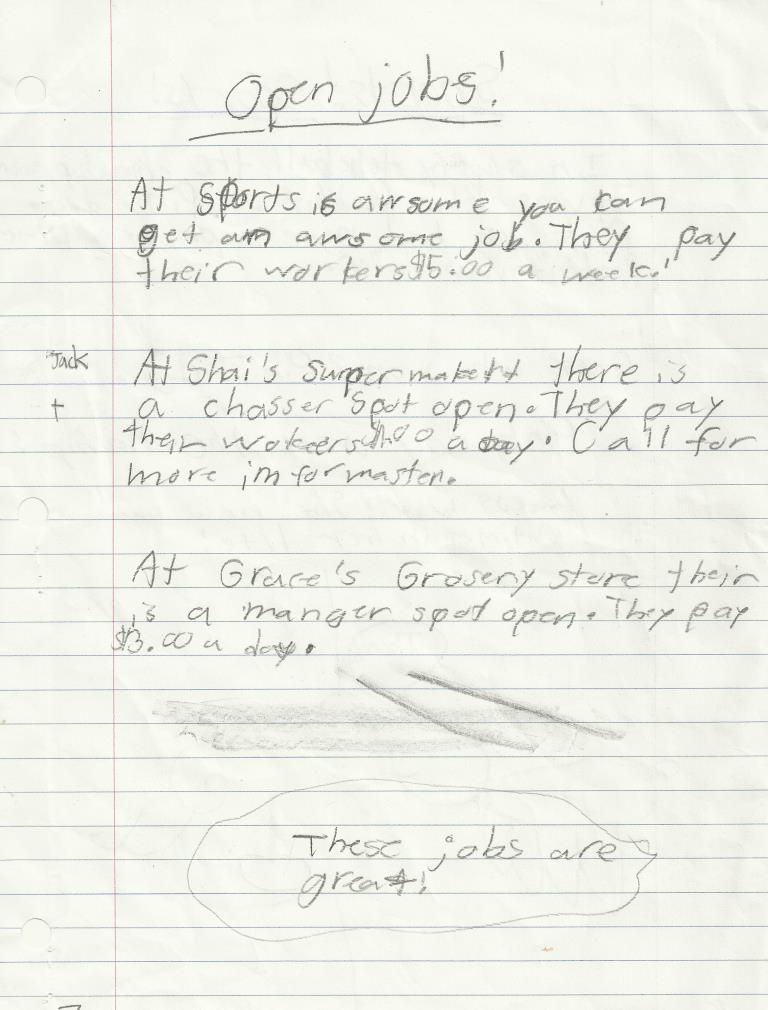 Open jobs!
At Sports is awsome you can
get an awsome job. They pay
their workers $5.00 a week!
Jack
At Shai's Supermakert there is
t
a chasser spot open. They pay
their wokeers $1.00 a day. Call for
more imformasten.
At Grace's Grosery store their
is a manger spot open. They pay
$3.00 a day.
These jobs are
great!